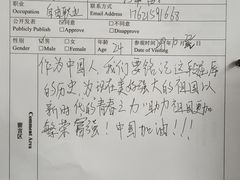 职业 Occupation 自由职业 联系方式 Email Address 1762154668
公开发表 Publicly Publish ☑同意 Approve □不同意 Disapprove
性别 Gender □男 Male □女 Female 年龄 Age 24 Date of Visiting
作为中国人,我们要铭记这段厚
的历史,为现在美好强大的祖国以
新时代的青春之力"助力祖国更加
繁荣富强!中国加油!!!
留言区 Comment Area